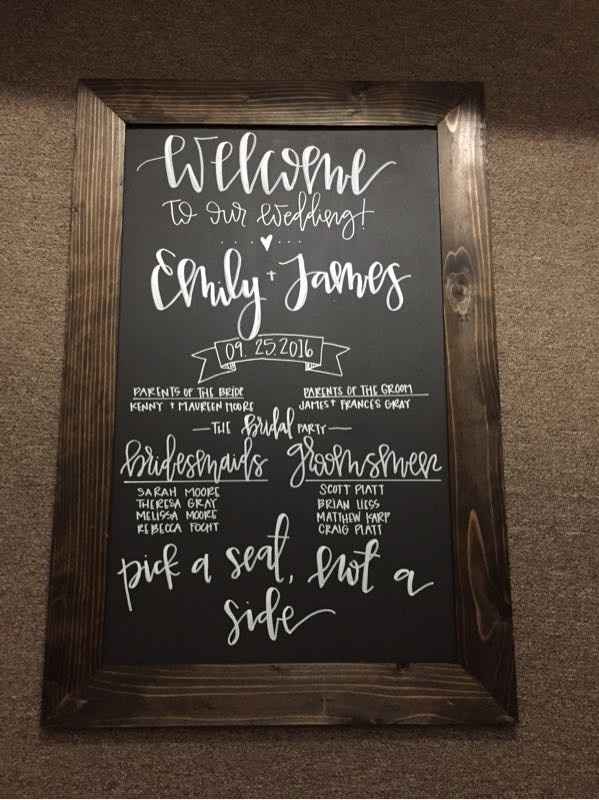 Welcome
to our wedding!
Emily + James
09.25.2016
PARENTS OF THE BRIDE PARENTS OF THE GROOM
KENNY + MAUREEN MOORE JAMES + FRANCES GRAY
—THE Bridal PARTY—
bridesmaids groomsmen
SARAH MOORE SCOTT PLATT
THERESA GRAY BRIAN LIESS
MELISSA MOORE MATTHEW KARP
REBECCA FOCHT CRAIG PLATT
pick a seat, not a
side